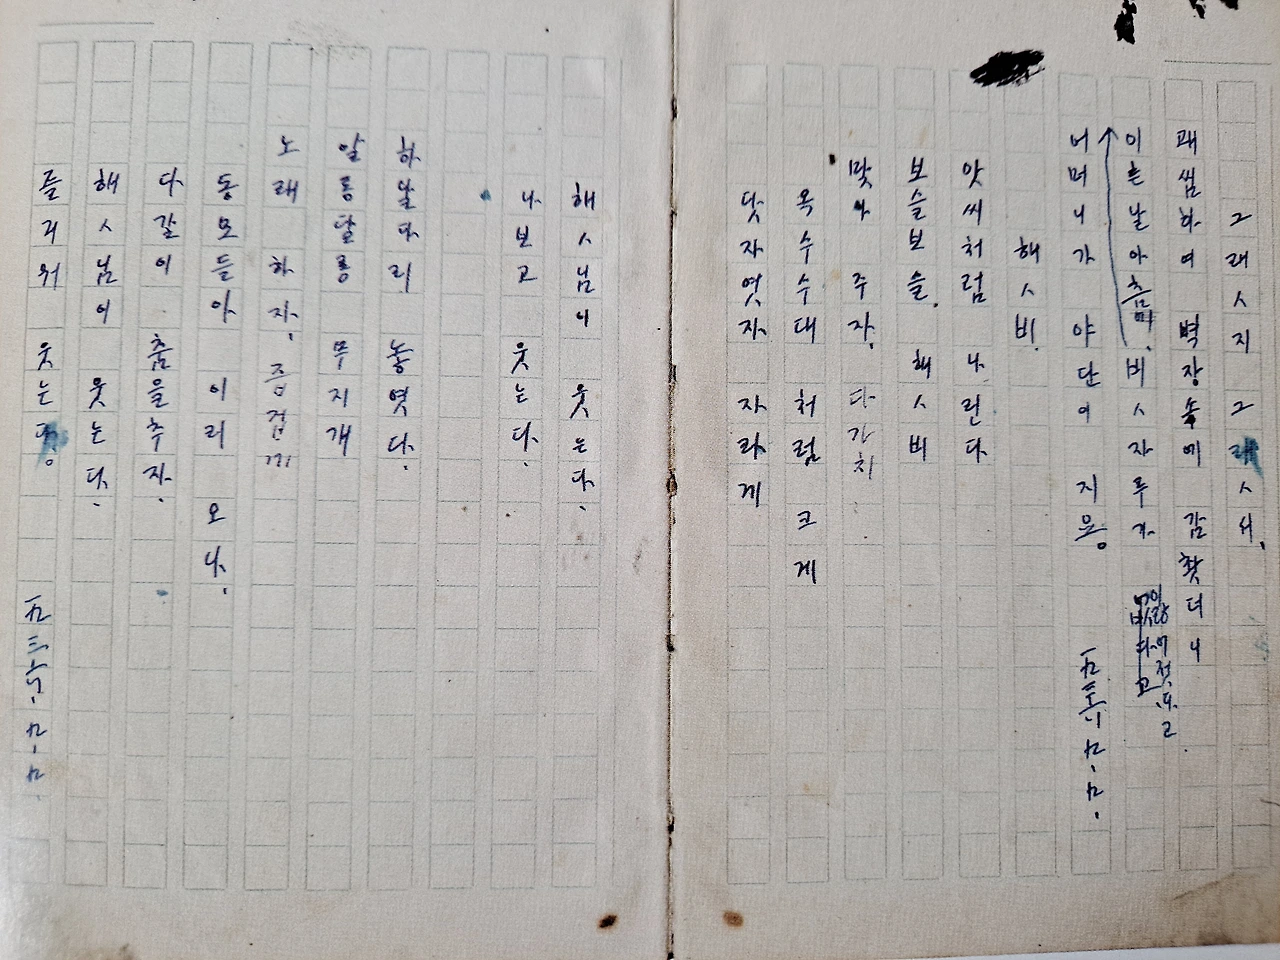 그래ㅅ지 그래ㅅ서,
괘씸하여 벽장속에 감찻더니
이튼날아츰 비ㅅ자루가
어머니가 야단이 지응。
一九三六、九、九、
해ㅅ비
앗씨처럼 나린다
보슬보슬, 해ㅅ비
맞아 주자, 다가치
옥수수대 처럼 크게
닷자엿자 자라게
해ㅅ님이 웃는다.
나보고 웃는다.
하날다리 놓엿다.
알롱달롱 무지개
노래 하자, 즘겁게
동모들아 이리 오나,
다갈이 춤을추자,
해ㅅ님이 웃는다.
즐거워 웃는다。
一九三六、九、九、